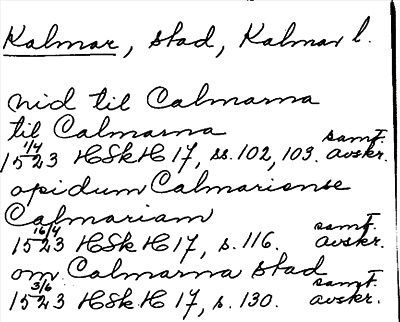 Kalmar, stad, Kalmar l.
nid til Calmarna
til Calmarna
15 1/4 23 HSkH 17, ss. 102, 103. samt. avskr.
opidum Calmariense
Calmariam
15 16/4 23 HSkH 17, s. 116. samt. avskr.
om Calmarna stad
15 3/6 23 HSkH 17, s. 130. samt. avskr.